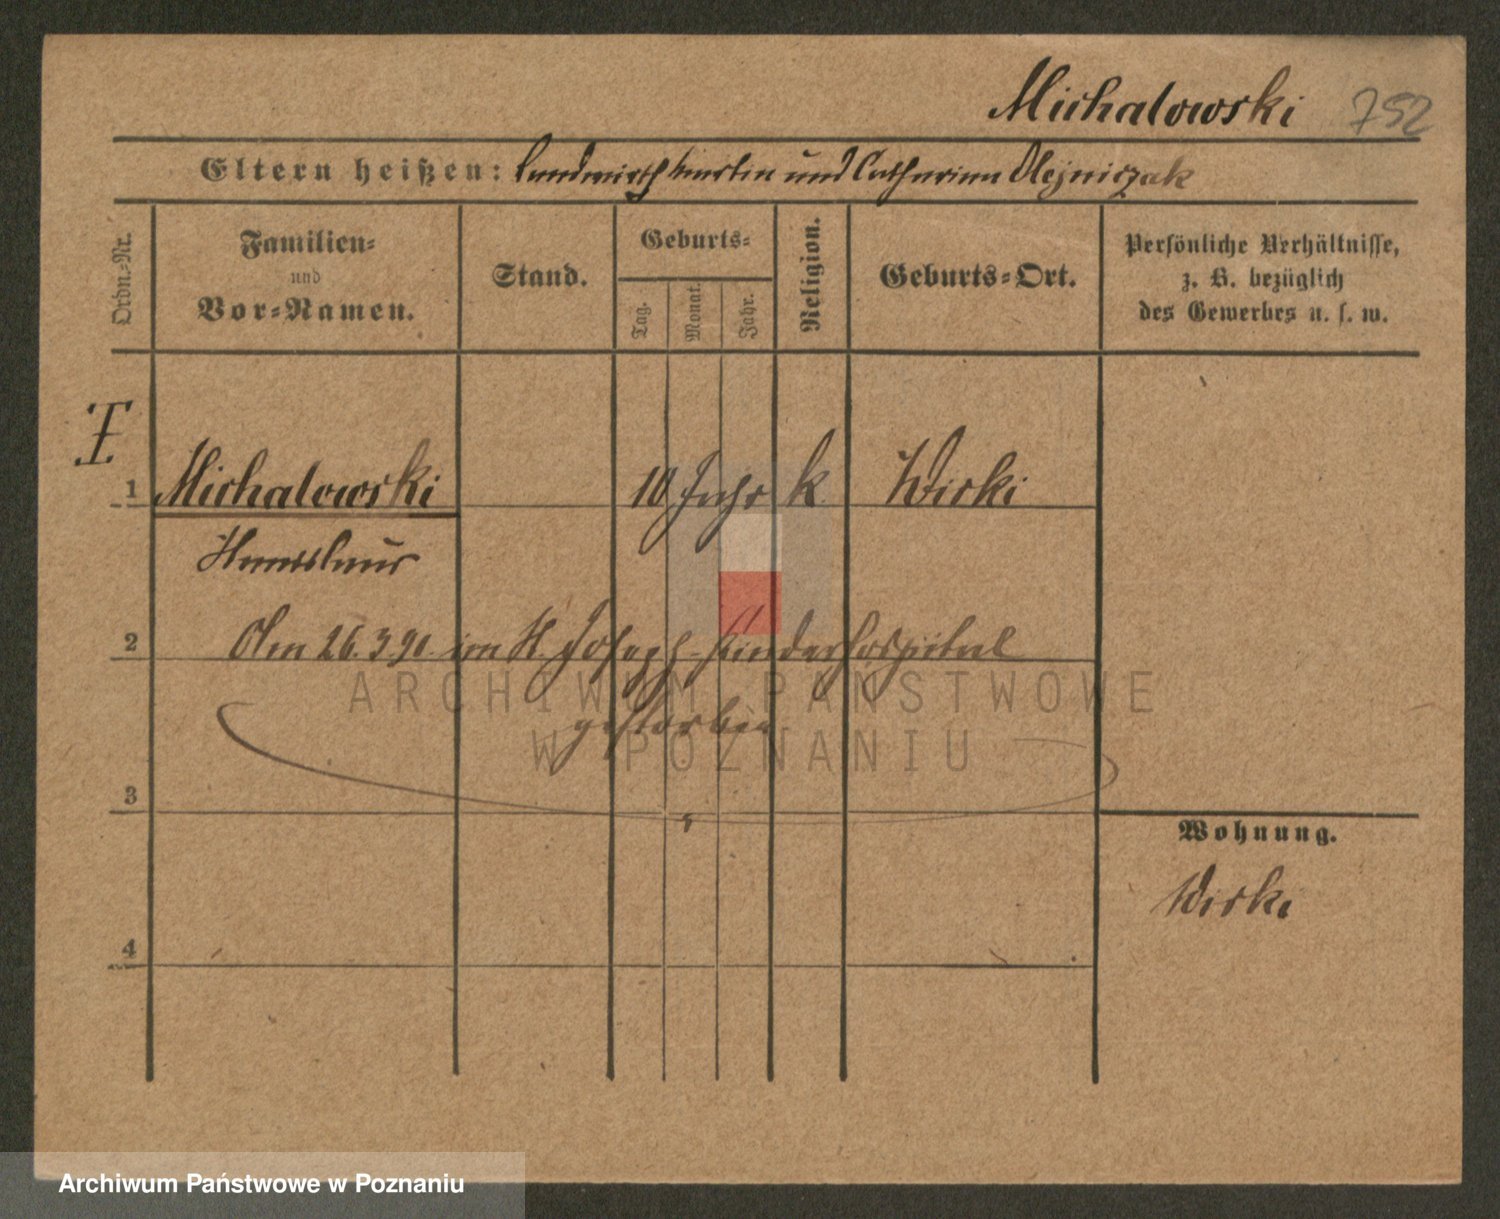 Michalowski 752
Eltern heißen: Landwirth Martin und Catharina Olejniczak
Ordn.-Nr.
Familien-
und
Vor-Namen.
Stand.
Geburts-
Tag.
Monat.
Jahr.
Religion.
Geburts-Ort.
Persönliche Verhältnisse,
z. B. bezüglich
des Gewerbes u. s. w.
1 Michalowski 10 Jahr k Wirki
Stanislaus
2 Am 26.3 90. im St. Joseph-Kinderhospital
gestorben
3
4
Wohnung.
Wirki
ARCHIWUM PAŃSTWOWE
W POZNANIU
Archiwum Państwowe w Poznaniu